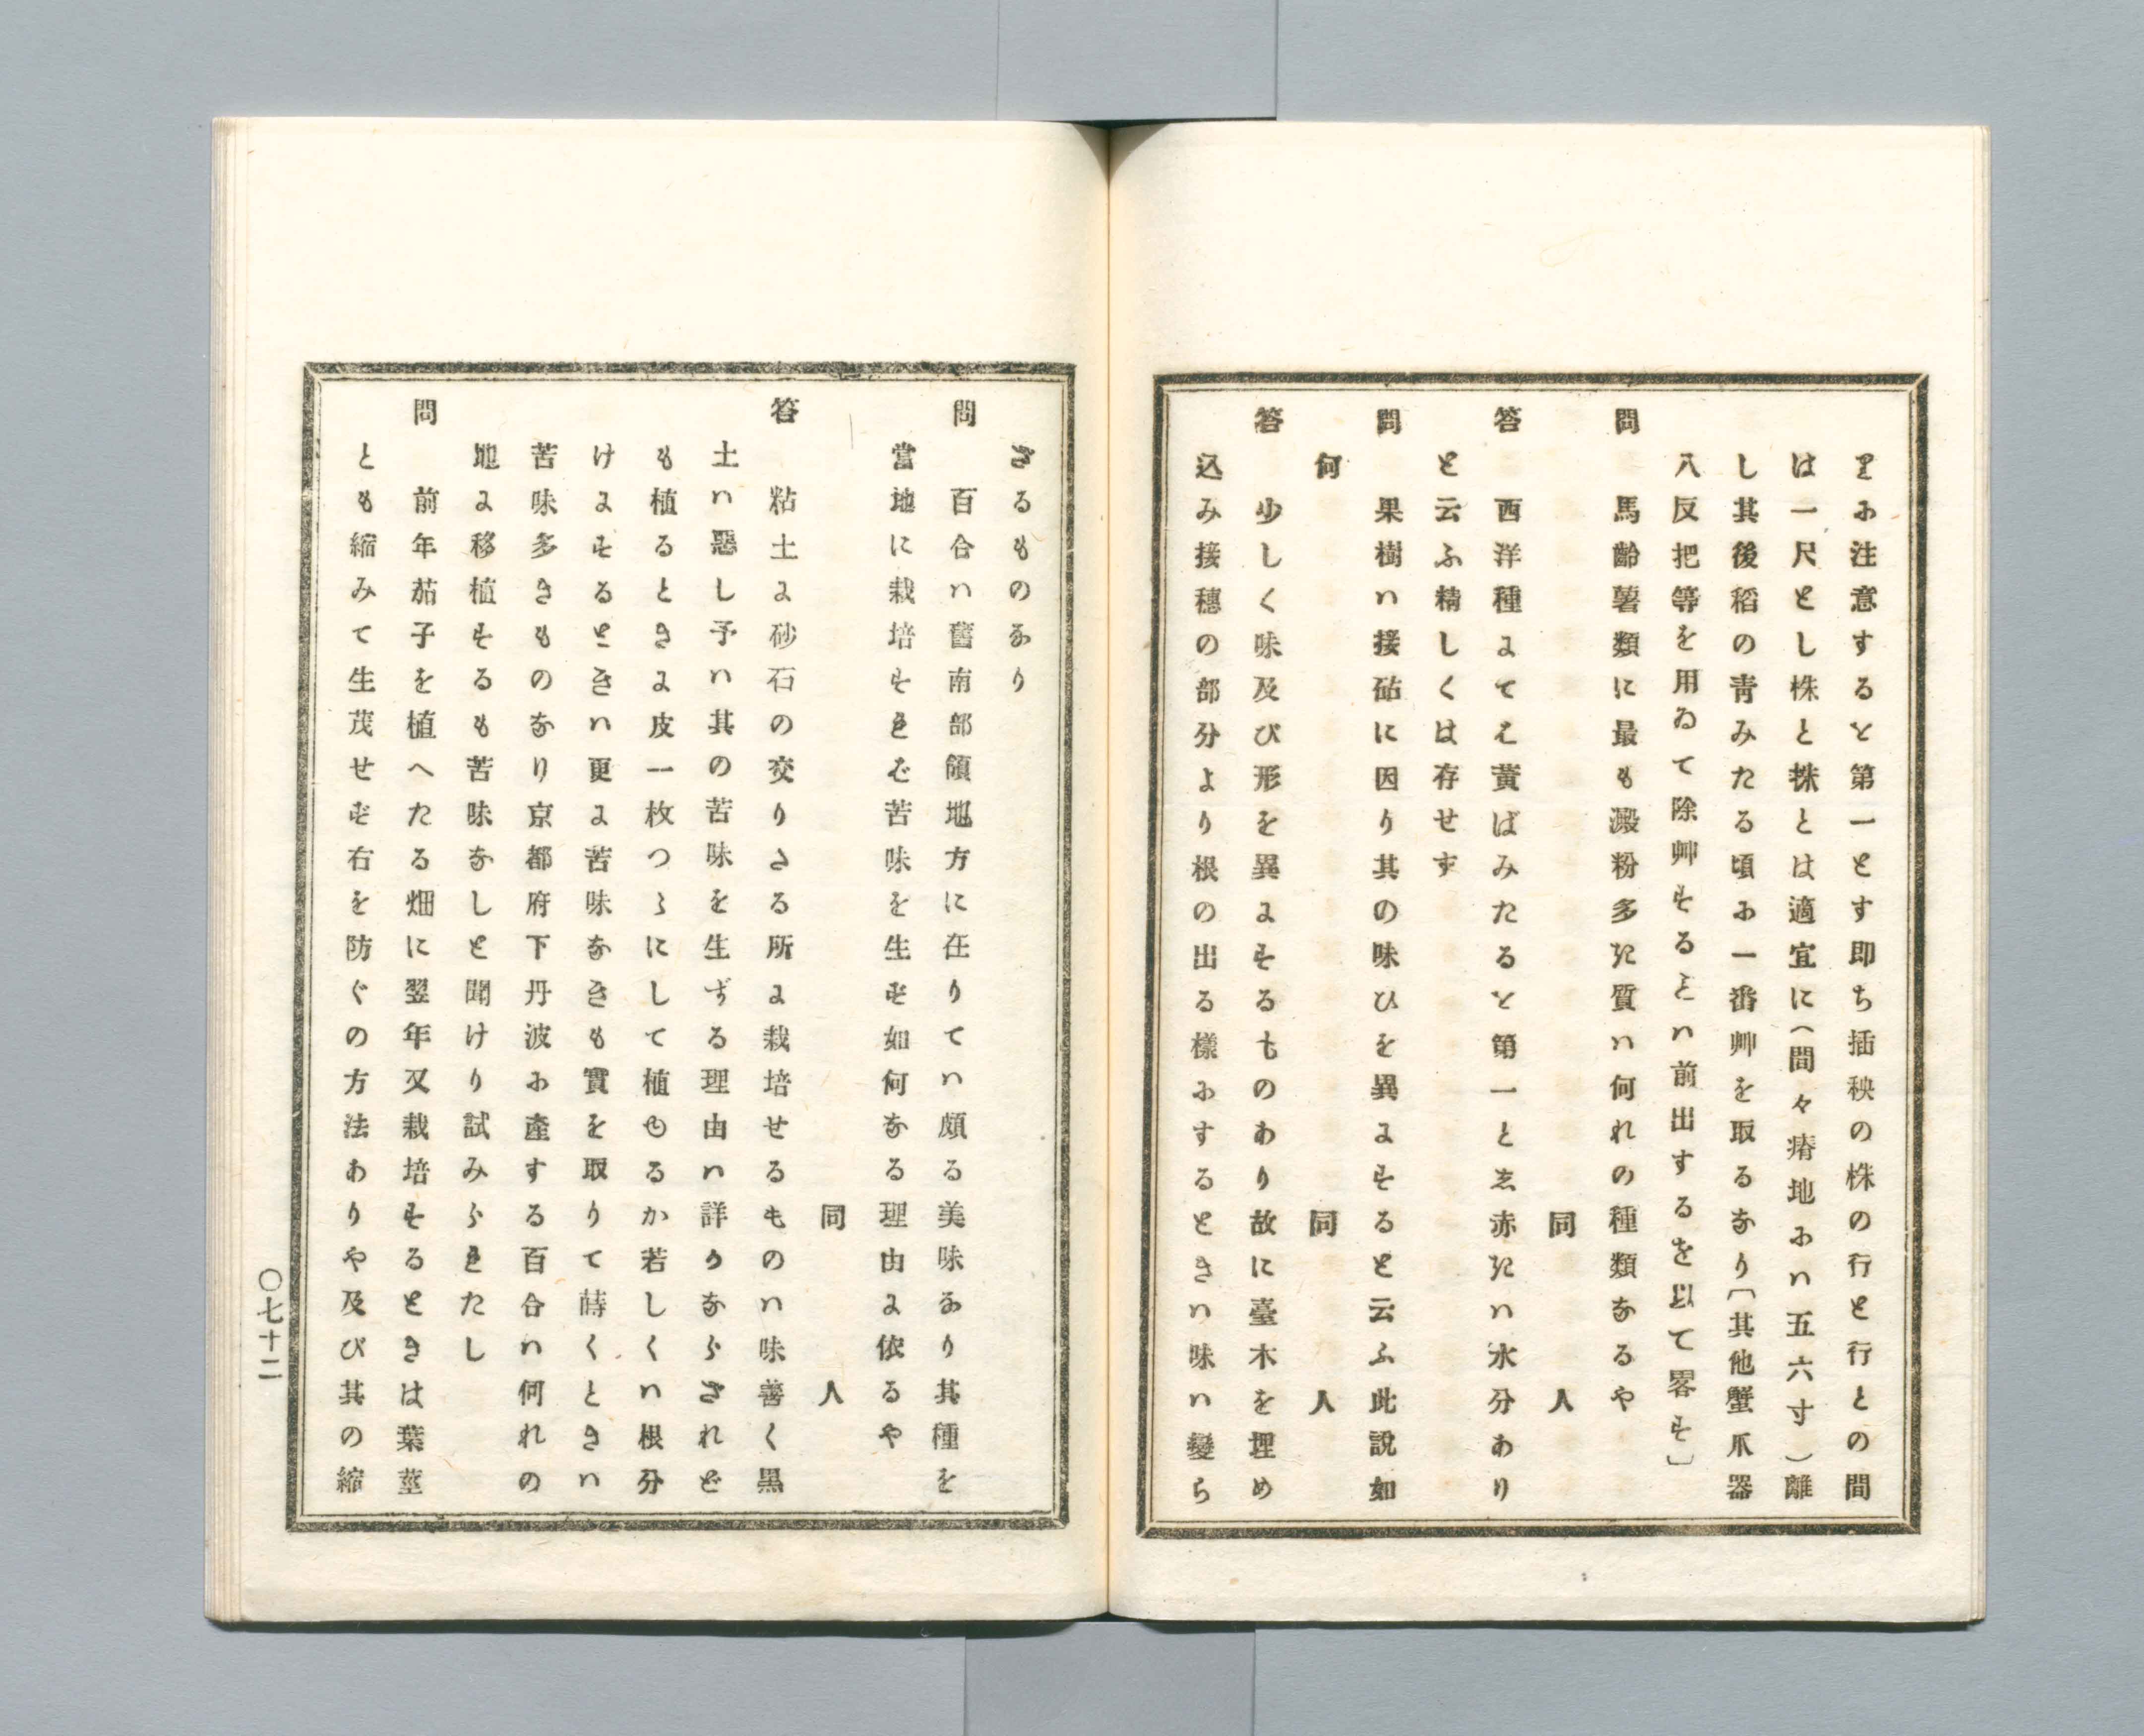 とに注意するを第一とす即ち插秧の株の行と行との間
は一尺とし株と株とは適宜に(間々瘠地には五六寸)離
し其後稻の青みたる頃に一番艸を取るなり〔其他蟹爪器
八反把等を用ゐて除艸するとは前出するを以て畧す〕
問 馬齡薯類に最も澱粉多き質は何れの種類なるや
同人
答 西洋種にては黄ばみたるを第一とし赤きは水分あり
と云ふ精しくは存せす
問 果樹は接砧に因り其の味ひを異にすると云ふ此説如
何 同人
答 少しく味及び形を異にするものあり故に臺木を埋め
込み接穗の部分より根の出る樣にするときは味は變ら
ざるものなり
問 百合は舊南部領地方に在りては頗る美味なり其種を
當地に栽培すれば苦味を生ず如何なる理由に依るや
同人
答 粘土に砂石の交りたる所に栽培せるものは味善く黑
土は惡し予は其の苦味を生ずる理由は詳かならざれど
も植るときに皮一枚つゝにして植ゆるか若しくは根分
けにするときは更に苦味なきも實を取りて蒔くときは
苦味多きものなり京都府下丹波に產する百合は何れの
地に移植するも苦味なしと聞けり試みられたし
問 前年茄子を植へたる畑に翌年又栽培するときは葉莖
とも縮みて生茂せず右を防ぐの方法ありや及び其の縮
○七十二